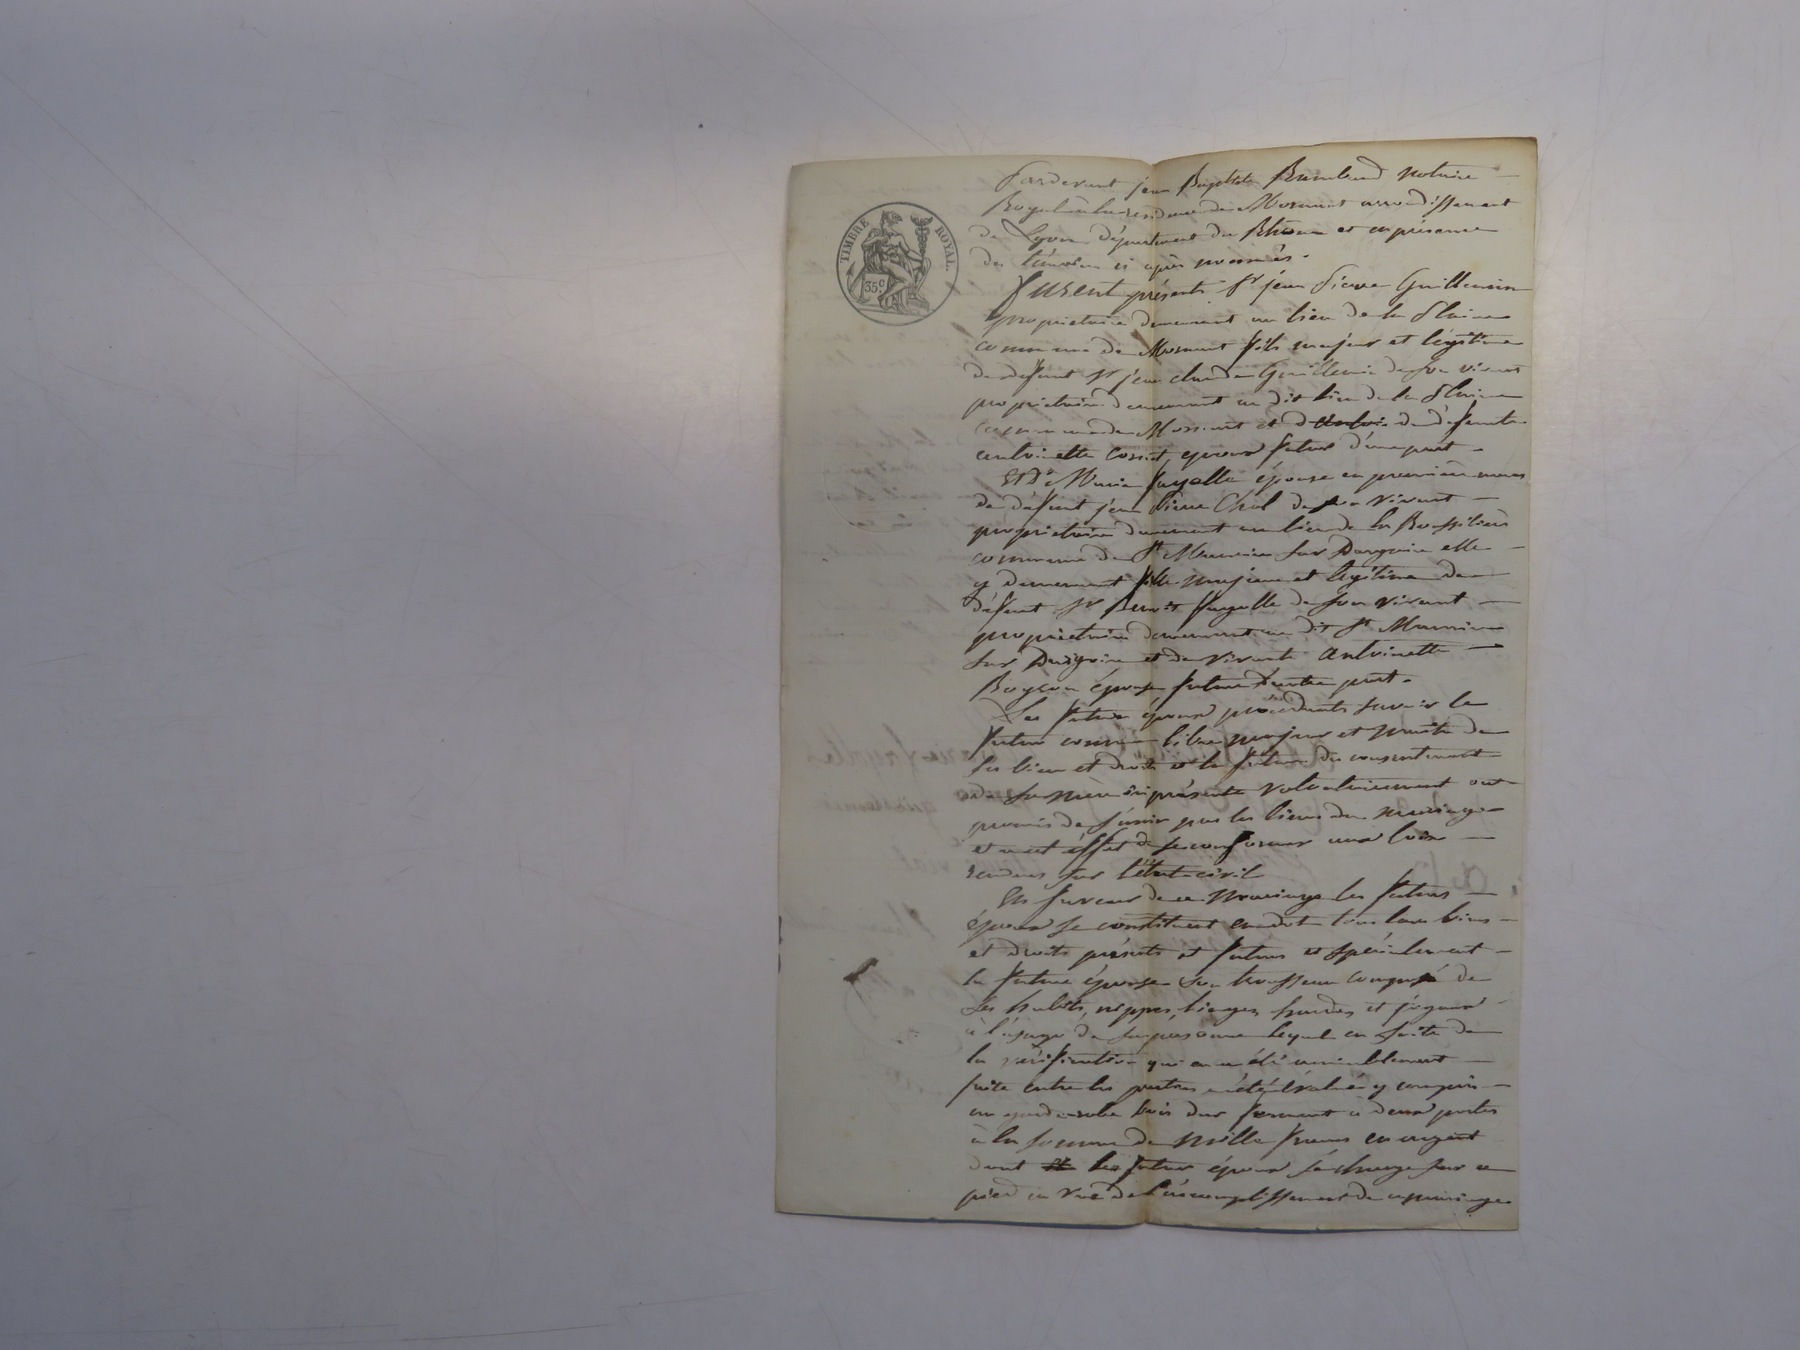 TIMBRE ROYAL.
35c
Pardevant jean Baptiste Rambaud notaire
Royal à la residence de Mornant arrondissement
de Lyon département du Rhône et en présence
des témoins ci après nommés.
Furent présents Sr jean Pierre Guillermin
propriétaire demeurant au lieu de la Plaine
commune de Mornant fils majeur et légitime
de défunt Sr jean claude Guillermin de son vivant
propriétaire demeurant au dit lieu de la Plaine
commune de Mornant et de défunte
antoinette époux futur d'une part.
Et De Marie fayolle épouse en premieres noces
de défunt jean Pierre Chol de son vivant
propriétaire demeurant au lieu de la
commune de St Maurice sur Dargoire elle
y demeurant fille majeure et légitime de
défunt Sr Benoit fayolle de son vivant
propriétaire demeurant au dit St Maurice
sur Dargoire et de vivante antoinette
épouse future d'autre part.
Les futurs époux procédants savoir le
futur comme libre majeur et maître de
ses biens et droits et la future du consentement
de sa mère ici présente volontairement ont
promis de s'unir par les liens du mariage
et a cet éffet de se conformer aux loix
rendues sur l'état civil
En faveur de ce mariage les futurs
époux se constituent en dot tous leurs biens
et droits présents et futurs et spécialement
la future épouse son trousseau composé de
ses habits, nippes, linges, hardes et joyaux
à l'usage de sa personne lequel en suite de
la vérification qui en a été amiablement
faite entre les parties a été évalué y compris
un garderobe bois dur fermant à deux portes
à la somme de mille francs en argent
dont le futur époux se charge sur ce
pied en vue de l'accomplissement de ce mariage